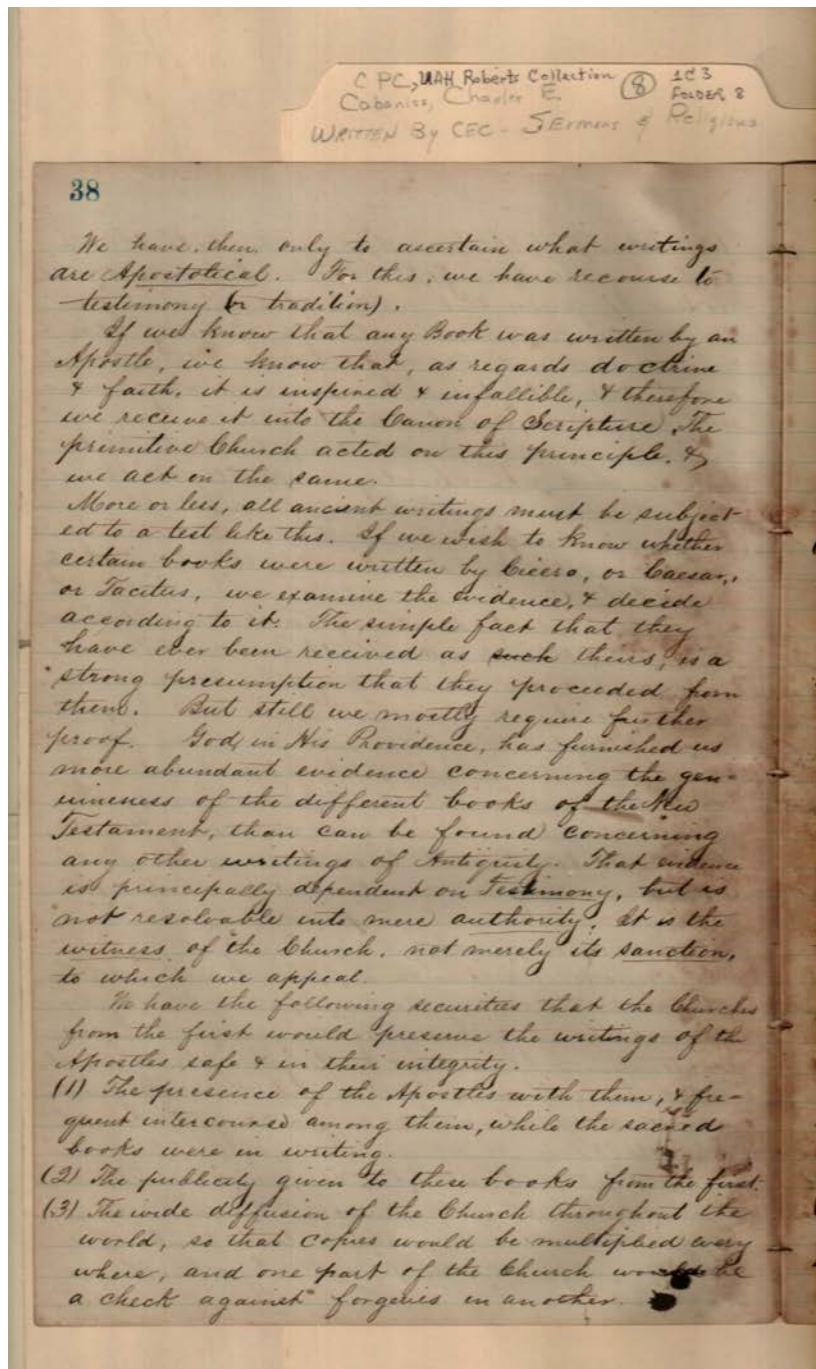 C PC, UAH Roberts Collection (8) 1C3
Cabaniss, Charles E. FOLDER 8
WRITTEN By CEC - SErmons & Religious
38
We have, then, only to ascertain what writings
are Apostotical. For this, we have recourse to
testimony (or tradition).
If we know that any Book was written by an
Apostle, we know that, as regards doctrine
& faith, it is inspired & infallible, & therefore
we receive it into the Canon of Scripture. The
primitive Church acted on this principle, &
we act on the same.
More or less, all ancient writings must be subject-
ed to a test like this. If we wish to know whether
certain books were written by Cicero, or Caesar,
or Tacitus, we examine the evidence, & decide
according to it. The simple fact that they
have ever been received as such theirs, is a
strong presumption that they proceeded from
them. But still we mostly require further
proof. God, in His Providence, has furnished us
more abundant evidence concerning the gen-
uineness of the different books of the New
Testament, than can be found concerning
any other writings of Antiquity. That evidence
is principally dependent on Testimony, but is
not resolvable into mere authority. It is the
witness of the Church, not merely its sanction,
to which we appeal.
We have the following securities that the Churches
from the first would preserve the writings of the
Apostles safe & in their integrity.
(1) The presence of the Apostles with them, & fre-
quent intercourse among them, while the sacred
books were in writing.
(2) The publicity given to these books from the first.
(3) The wide diffusion of the Church throughout the
world, so that copies would be multiplied every
where, and one part of the Church would be
a check against forgeries in another.